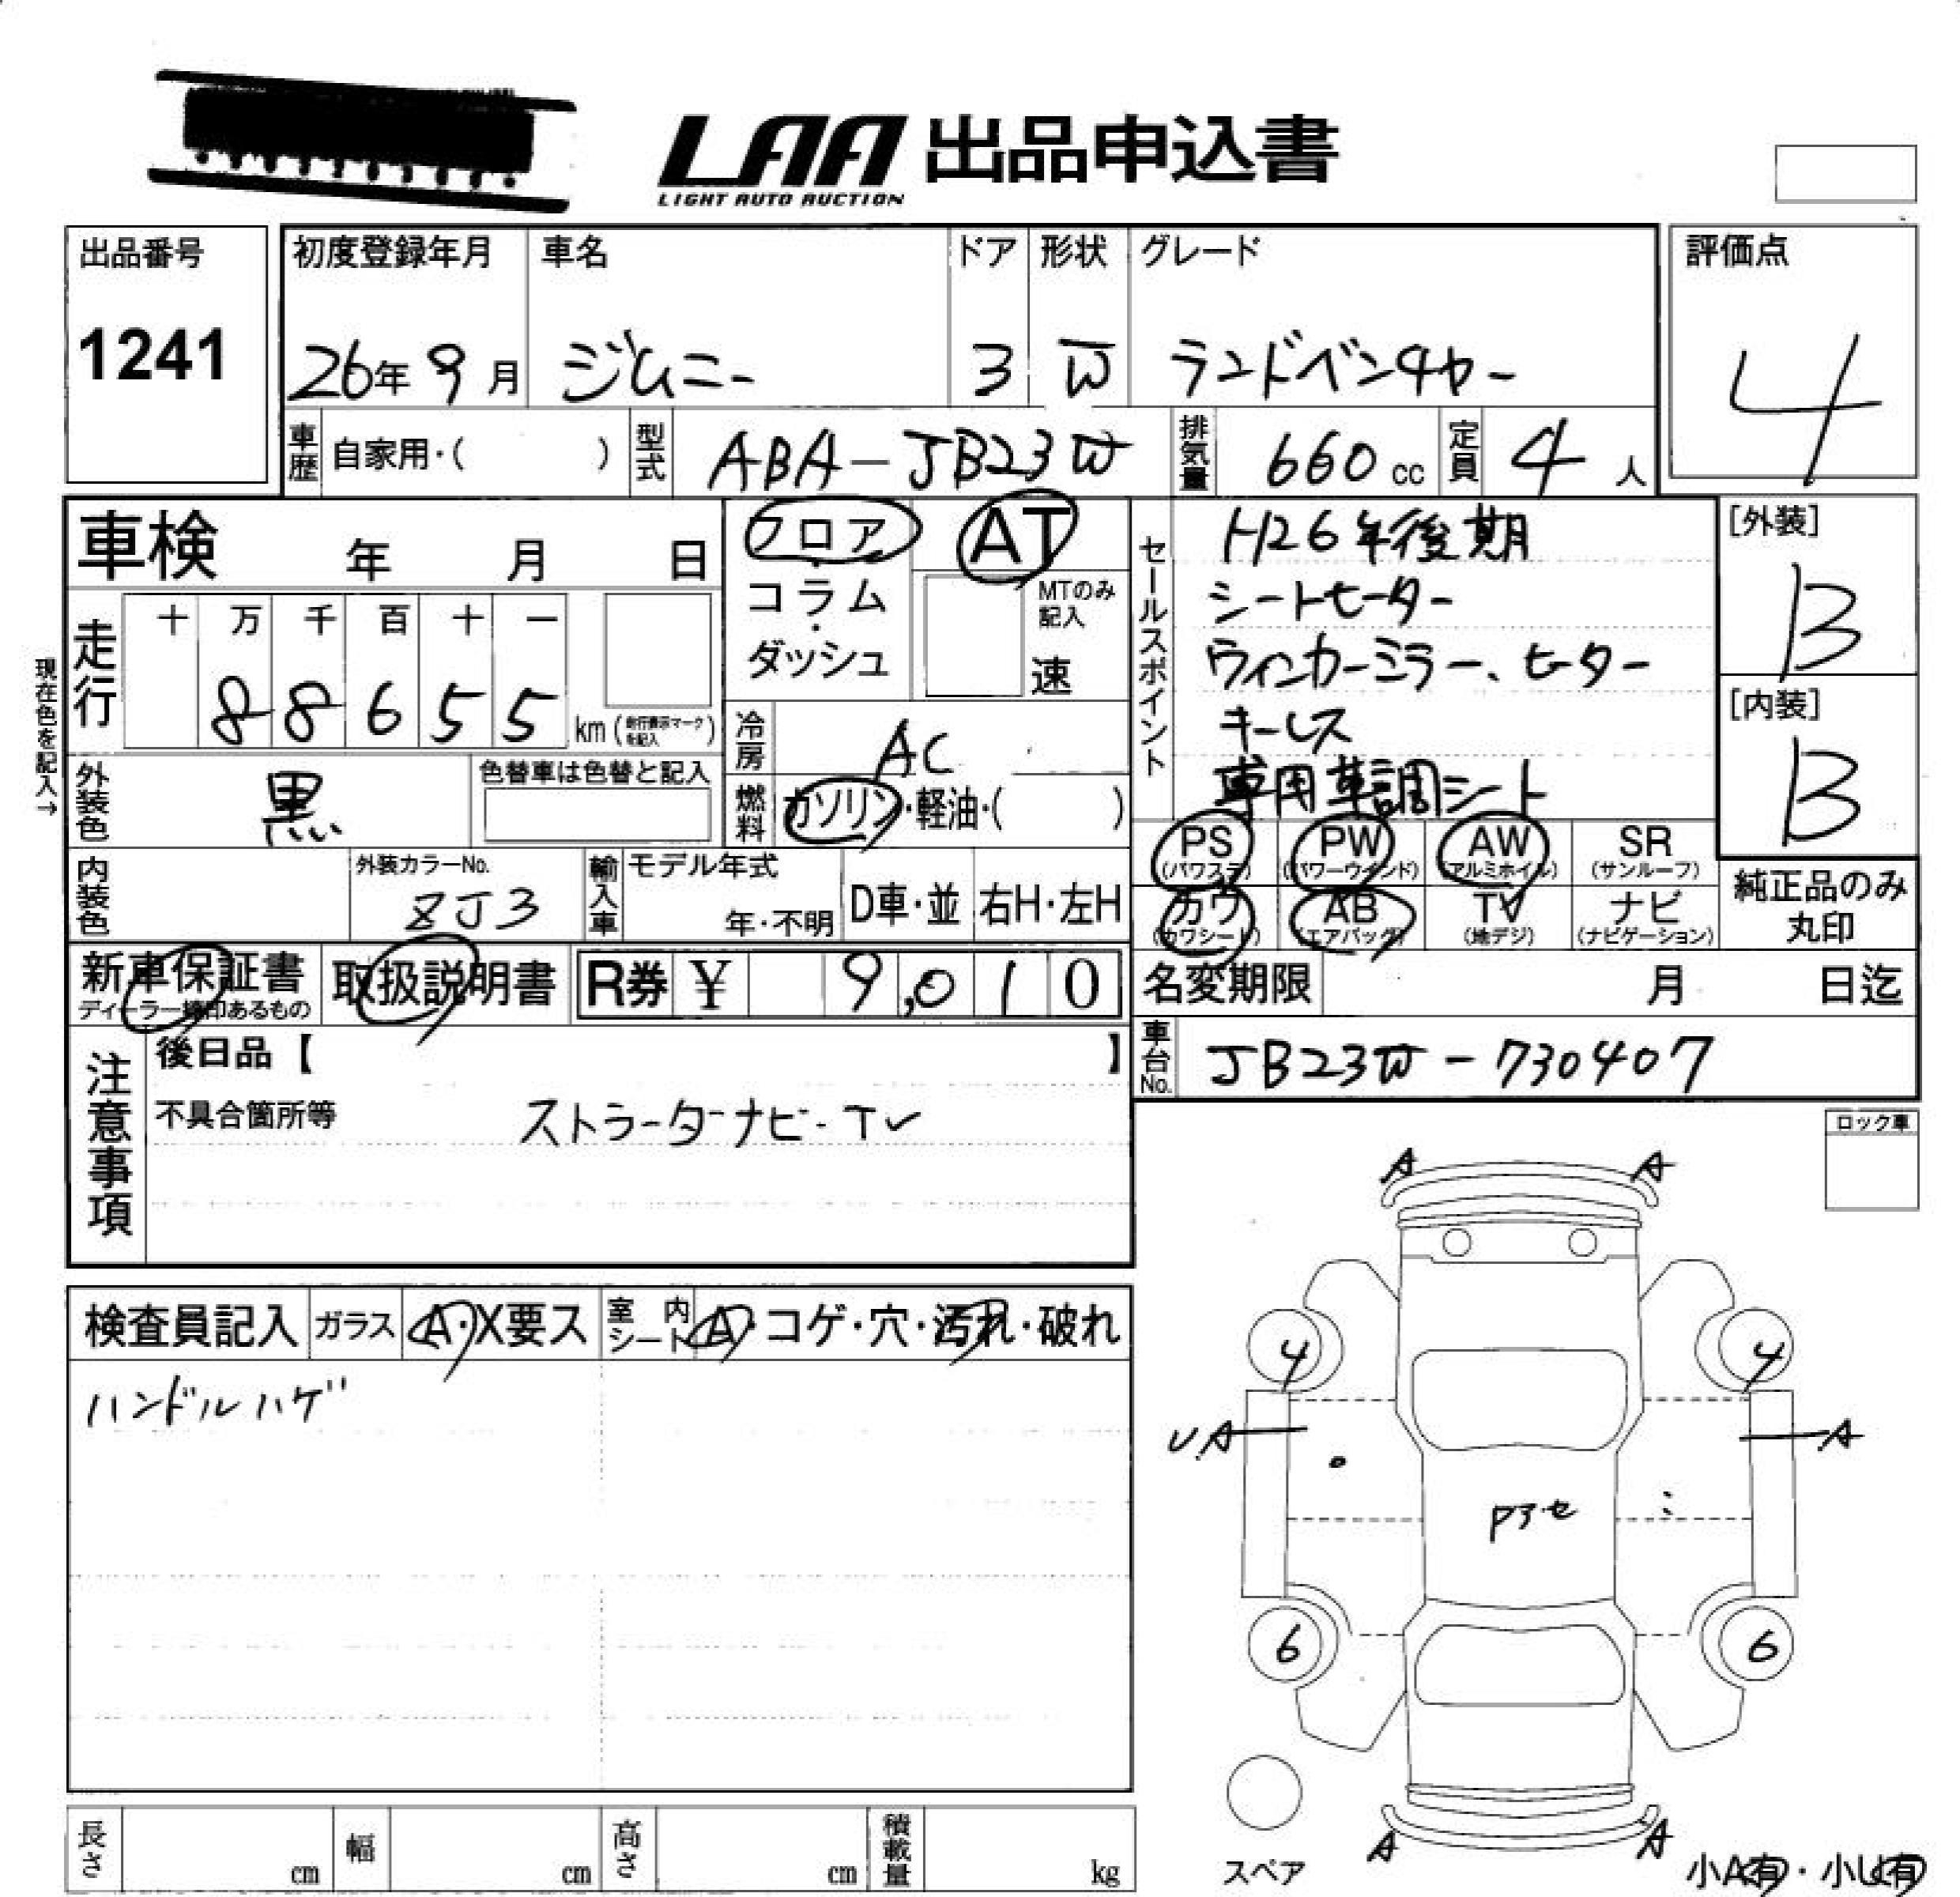 LAA 出品申込書
LIGHT AUTO AUCTION
出品番号
1241
初度登録年月
26年 9月
車名
ジムニー
ドア
3
形状
W
グレード
ランドベンチャー
評価点
4
車歴
自家用・( )
型式
ABA-JB23W
排気量
660 cc
定員
4 人
車検 年 月 日
フロア
・
コラム
・
ダッシュ
AT
MTのみ
記入
速
セールスポイント
H26年後期
シートヒーター
ウィンカーミラー、ヒーター
キーレス
専用革調シート
[外装]
B
[内装]
B
現在色を記入→
走行
十 万 千 百 十 一
8 8 6 5 5
km (走行表示マークを記入)
冷房
AC
外装色
黒
色替車は色替と記入
燃料
ガソリン・軽油・( )
PS
(パワステ)
PW
(パワーウインド)
AW
(アルミホイル)
SR
(サンルーフ)
内装色
外装カラーNo.
ZJ3
輸入車
モデル年式
年・不明
D車・並
右H・左H
カワ
(カワシート)
AB
(エアバッグ)
TV
(地デジ)
ナビ
(ナビゲーション)
純正品のみ
丸印
新車保証書
ディーラー捺印あるもの
取扱説明書
R券 ¥ 9,010
名変期限 月 日迄
車台No.
JB23W-730407
注意事項
後日品【 】
不具合箇所等
ストラーダナビ・TV
ロック車
検査員記入
ガラス
A・X要ス
室内
シート
A・コゲ・穴・汚れ・破れ
ハンドルハゲ
A A
4 4
UA A
Pアセ
6 6
A A
スペア
小A有・小U有
長さ cm
幅 cm
高さ cm
積載量 kg